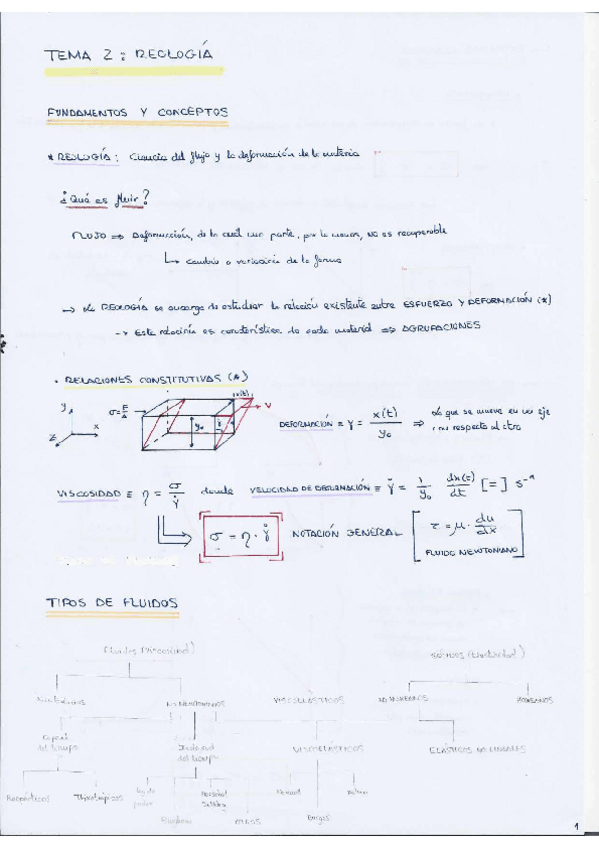 TEMA 2: REOLOGÍA
FUNDAMENTOS Y CONCEPTOS
* REOLOGÍA: Ciencia del flujo y la deformación de la materia
¿Qué es fluir?
FLUJO => Deformación, de la cual una parte, por lo menos, no es recuperable
↳ cambio o variación de la forma
→ La REOLOGÍA se encarga de estudiar la relación existente entre ESFUERZO Y DEFORMACIÓN (*)
-> Esta relación es característica de cada material => AGRUPACIONES
• RELACIONES CONSTITUTIVAS (*)
y x z
σ = F/A
x(t)
y₀
V
DEFORMACIÓN ≡ γ = x(t)/y₀ => Lo que se mueve en un eje
con respecto al otro
VISCOSIDAD ≡ η = σ/γ̇ donde VELOCIDAD DE DEFORMACIÓN ≡ γ̇ = 1/y₀ dx(t)/dt [=] s⁻¹
σ = η · γ̇ NOTACIÓN GENERAL [τ = μ · du/dx
FLUIDO NEWTONIANO]
TIPOS DE FLUIDOS
Fluidos (Viscosidad) SÓLIDOS (Elasticidad)
Newtonianos NO NEWTONIANOS VISCOELÁSTICOS NO HOOKEANOS HOOKEANOS
del tiempo del tiempo VISCOELÁSTICOS ELÁSTICOS NO LINEALES
Reopécticos Tixotrópicos Ley de
potencia Maxwell Kelvin
Bingham CROSS Burgers
1